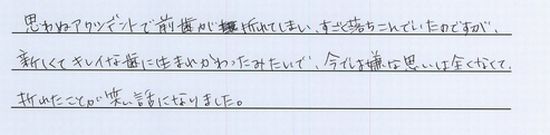 思わぬアクシデントで前歯が折れてしまい、すごく落ちこんでいたのですが、
新しくてキレイな歯に生まれかわったみたいで、今では嫌な思いは全くなくて、
折れたことが笑い話になりました。